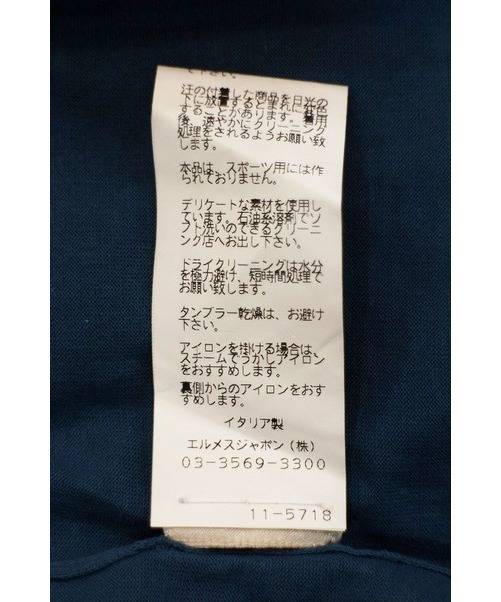 下さい。
汗の付着した商品を日光の
下に放置するとまれに変色
することがあります。着用
後、速やかにクリーニング
処理をされるようお願い致
します。
本品は、スポーツ用には作
られておりません。
デリケートな素材を使用し
ています。石油系溶剤でソ
フト洗いのできるクリーニ
ング店へお出し下さい。
ドライクリーニングは水分
を極力避け、短時間処理で
お願い致します。
タンブラー乾燥は、お避け
下さい。
アイロンを掛ける場合は、
スチームでうかしアイロン
をおすすめします。
裏側からのアイロンをおす
すめします。
イタリア製
エルメスジャポン(株)
03-3569-3300
11-5718